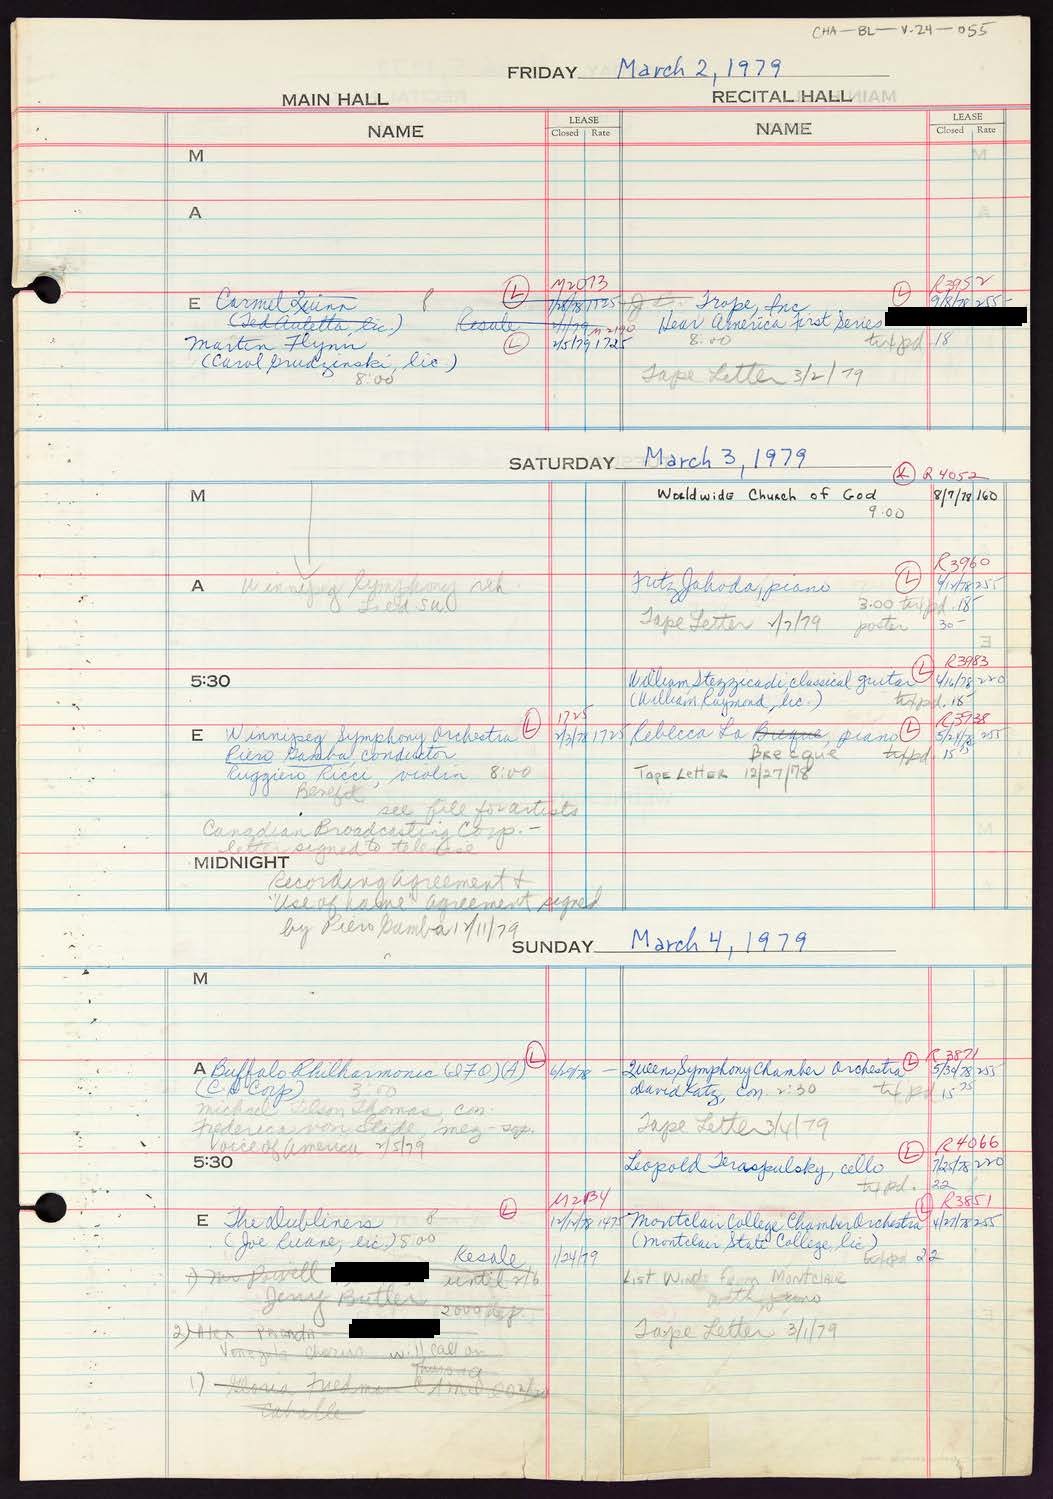 CHA-BL-V.24-055
FRIDAY March 2, 1979
MAIN HALL RECITAL HALL
NAME LEASE Closed Rate NAME LEASE Closed Rate
M
A
M2073 R3952
E Carmel Quinn 8 L 1725 Trope, Inc. L 9/8/78 255-
(Ted Auletta, lic) Resale M2190 Hear America First Series
Martin Flynn L 2/5/79 1725 8:00 txt pd. 18
(Carol Grudzinski, lic.)
8:00 Tape Letter 3/2/79
SATURDAY March 3, 1979
R4052
M Worldwide Church of God 8/7/78 160
9:00
R3960
A Winnipeg Symphony reh. Fritz Jahoda, piano L 255
3:00 txt pd. 18-
Tape Letter poster 30-
L R3983
5:30 William Stezzicadi, classical guitar 4/16/78 220
(William Raymond, lic.) txt pd. 18-
1725 R3938
E Winnipeg Symphony Orchestra L 2/2/78 1725 Rebecca La Breque, piano L 255
Piero Gamba, conductor Brecque txt pd. 15
Ruggiero Ricci, violin 8:00 Tape Letter 12/27/78
Benefit
see file for artists
Canadian Broadcasting Corp. -
letter signed to televise
MIDNIGHT
Recording Agreement +
"Use of name" agreement signed
by Piero Gamba 12/11/79
SUNDAY March 4, 1979
M
L R3871
A Buffalo Philharmonic (A) Queens Symphony Chamber Orchestra L 5/30/78 255
(CH Corp) 3:00 David Katz, con. 2:30 txt pd 15
Michael Tilson Thomas, con.
Frederica von Stade, mez-sop. Tape Letter 3/4/79
Voice of America 2/5/79
L R4066
5:30 Leopold Teraspulsky, cello 7/25/78 220
txt pd. 22
M2134 L R3851
E The Dubliners 8 L 12/14/78 1475 Montclair College Chamber Orchestra 4/27/78 255
(Joe Ruane, lic.) 8:00 (Montclair State College, lic)
Resale 1/24/79 txt pd 22
1) Mr Powell until 2/6 List Winds from Montclair
Jerry Butler with piano
2000 dep.
2) Alex Tape Letter 3/1/79
chorus will call on
1) Gloria Friedman
Caballe